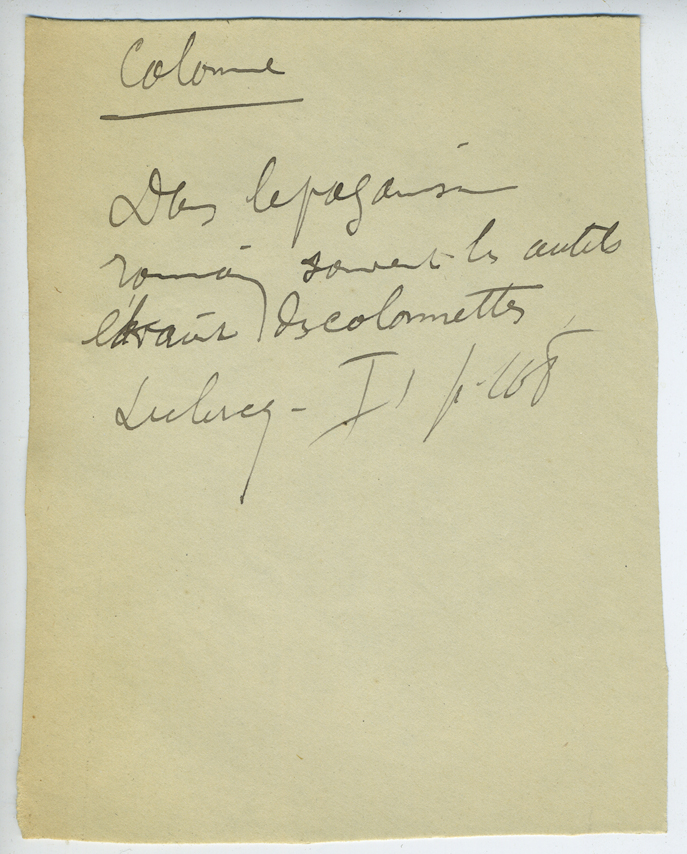 Colonne
Dans le paganisme
romain souvent les autels
étaient des colonnettes
Leclercq - I' p. 168